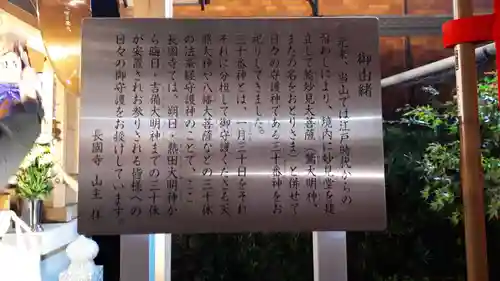 御由緒
元来、当山では江戸時代からの
宿わしにより、境内に妙見堂を建
立して鷲妙見大菩薩（鷲大明神、
またの名をおとりさま）と併せて
日々の守護神である三十番神をお
祀りしてきました。
三十番神とは、一月三十日をそれ
ぞれに分担して御守護くださる天
照大神や八幡大菩薩などの三十体
の法華経守護神のことで、ここ
長國寺では、朔日・熱田大明神か
ら晦日・吉備大明神までの三十体
が安置されお参りされる皆様への
日々の御守護をお授けしています。
長國寺 山主 拝